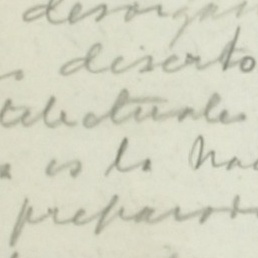 desorgani
s diserto
telectuales
a es la nac
preparado